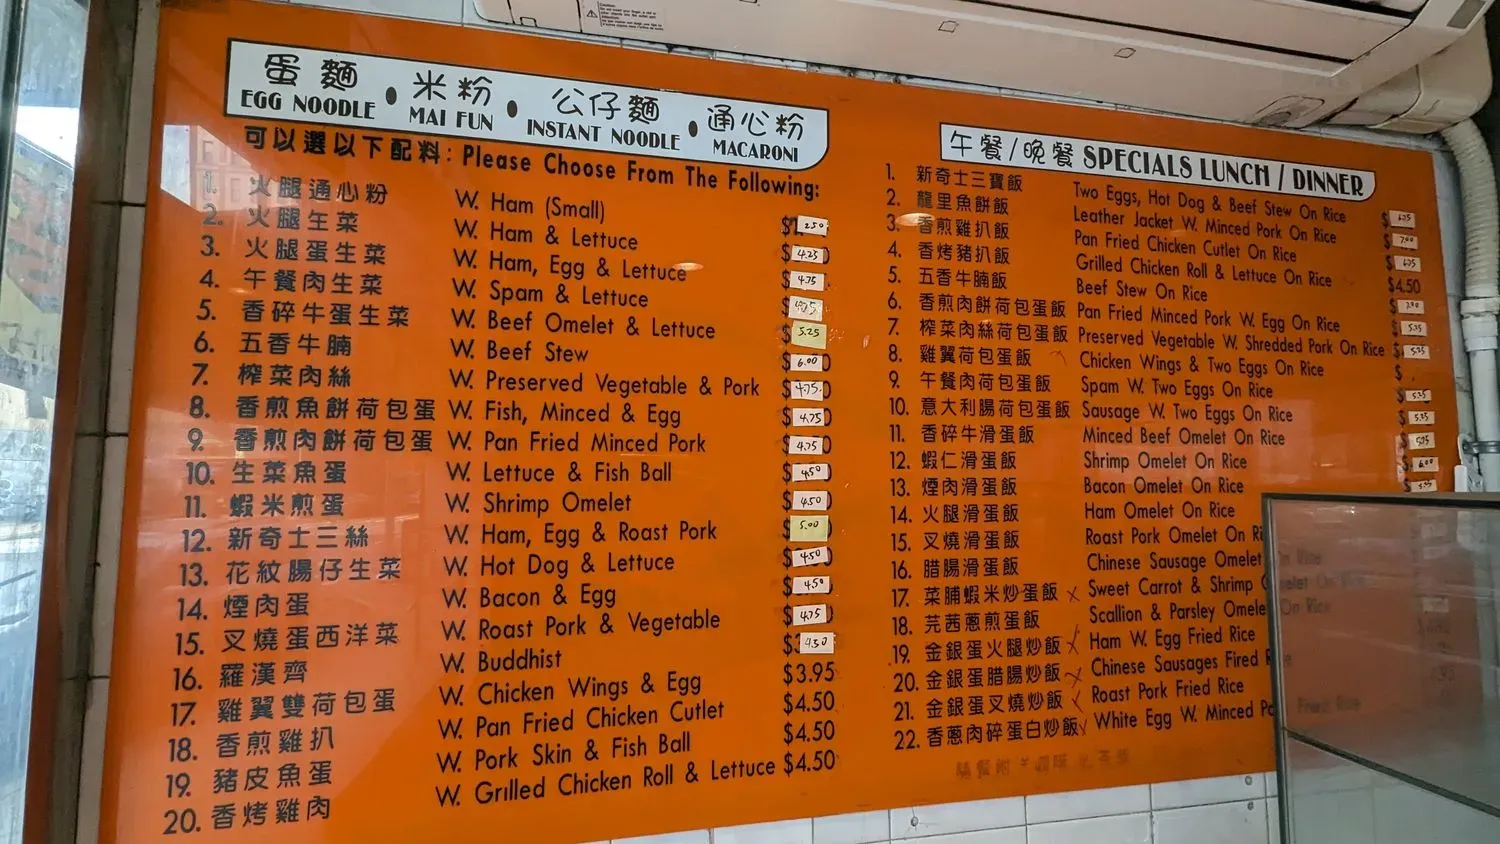 蛋麵 • 米粉 • 公仔麵 • 通心粉
EGG NOODLE MAI FUN INSTANT NOODLE MACARONI
可以選以下配料: Please Choose From The Following:
1. 火腿通心粉 W. Ham (Small) $ 2.50
2. 火腿生菜 W. Ham & Lettuce $ 4.25
3. 火腿蛋生菜 W. Ham, Egg & Lettuce $ 4.75
4. 午餐肉生菜 W. Spam & Lettuce $
5. 香碎牛蛋生菜 W. Beef Omelet & Lettuce $ 5.25
6. 五香牛腩 W. Beef Stew $ 6.00
7. 榨菜肉絲 W. Preserved Vegetable & Pork $ 4.75
8. 香煎魚餅荷包蛋 W. Fish, Minced & Egg $ 4.75
9. 香煎肉餅荷包蛋 W. Pan Fried Minced Pork $ 4.75
10. 生菜魚蛋 W. Lettuce & Fish Ball $ 4.50
11. 蝦米煎蛋 W. Shrimp Omelet $ 4.50
12. 新奇士三絲 W. Ham, Egg & Roast Pork $ 5.00
13. 花紋腸仔生菜 W. Hot Dog & Lettuce $ 4.50
14. 煙肉蛋 W. Bacon & Egg $ 4.50
15. 叉燒蛋西洋菜 W. Roast Pork & Vegetable $ 4.75
16. 羅漢齊 W. Buddhist $ 4.50
17. 雞翼雙荷包蛋 W. Chicken Wings & Egg $3.95
18. 香煎雞扒 W. Pan Fried Chicken Cutlet $4.50
19. 豬皮魚蛋 W. Pork Skin & Fish Ball $4.50
20. 香烤雞肉 W. Grilled Chicken Roll & Lettuce $4.50
午餐/晚餐 SPECIALS LUNCH / DINNER
1. 新奇士三寶飯 Two Eggs, Hot Dog & Beef Stew On Rice $
2. 龍里魚餅飯 Leather Jacket W. Minced Pork On Rice $ 7.00
3. 香煎雞扒飯 Pan Fried Chicken Cutlet On Rice $
4. 香烤豬扒飯 Grilled Chicken Roll & Lettuce On Rice $4.50
5. 五香牛腩飯 Beef Stew On Rice $
6. 香煎肉餅荷包蛋飯 Pan Fried Minced Pork W. Egg On Rice $ 5.25
7. 榨菜肉絲荷包蛋飯 Preserved Vegetable W. Shredded Pork On Rice $
8. 雞翼荷包蛋飯 Chicken Wings & Two Eggs On Rice $
9. 午餐肉荷包蛋飯 Spam W. Two Eggs On Rice $
10. 意大利腸荷包蛋飯 Sausage W. Two Eggs On Rice $
11. 香碎牛滑蛋飯 Minced Beef Omelet On Rice $
12. 蝦仁滑蛋飯 Shrimp Omelet On Rice $ 6.00
13. 煙肉滑蛋飯 Bacon Omelet On Rice $
14. 火腿滑蛋飯 Ham Omelet On Rice
15. 叉燒滑蛋飯 Roast Pork Omelet On Ri
16. 腊腸滑蛋飯 Chinese Sausage Omelet On Rice
17. 菜脯蝦米炒蛋飯 Sweet Carrot & Shrimp Omelet On
18. 芫茜蔥煎蛋飯 Scallion & Parsley Omele On Rice
19. 金銀蛋火腿炒飯 Ham W. Egg Fried Rice
20. 金銀蛋腊腸炒飯 Chinese Sausages Fired
21. 金銀蛋叉燒炒飯 Roast Pork Fried Rice
22. 香蔥肉碎蛋白炒飯 White Egg W. Minced Fried Rice